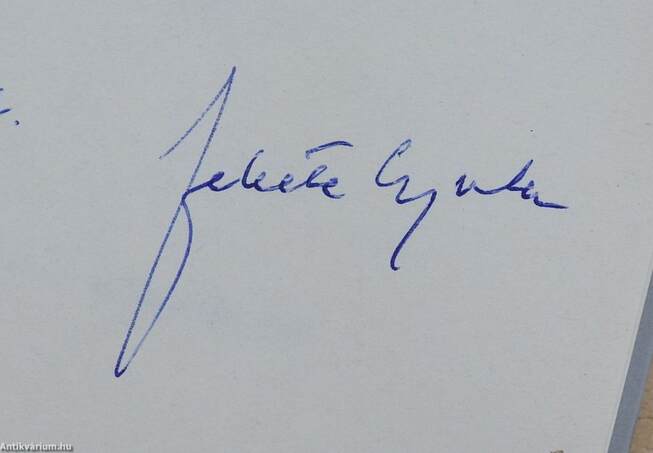 Fekete Gyula
Antikvárium.hu